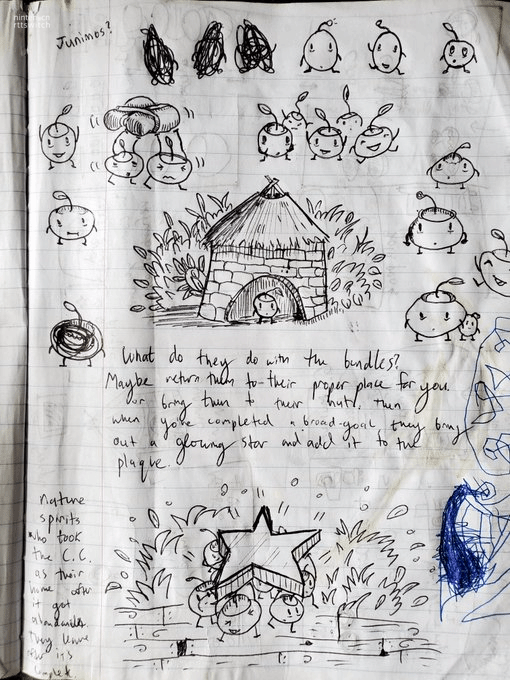 Junimos?
What do they do with the bundles?
Maybe return them to their proper place for you.
or bring them to their hut, then
when you've completed a broad-goal, they bring
out a glowing star and add it to the
plaque.
nature
spirits
who took
the C.C.
as their
home after
it got
abandoned.
they leave
its